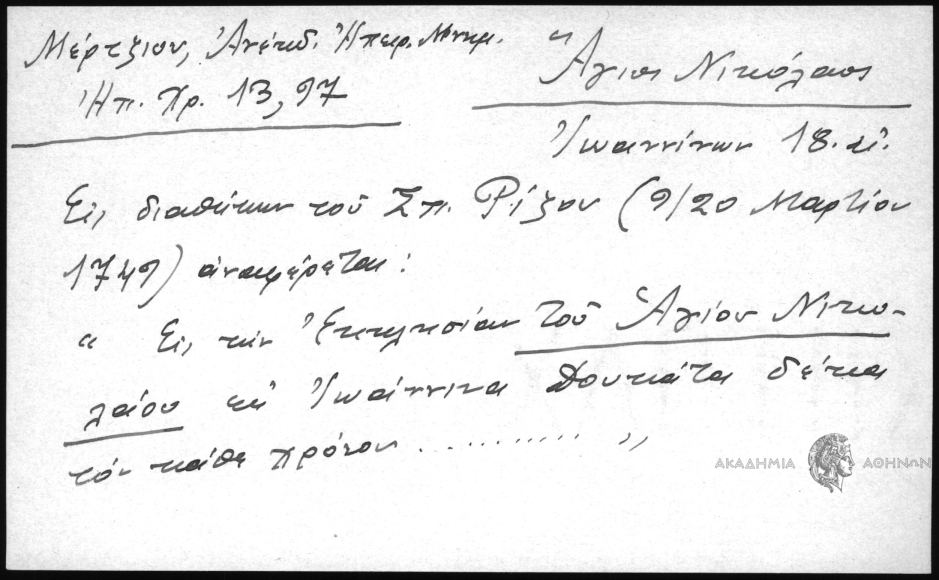 Μέρτζιου, Ἀνέκδ. Ἠπειρ. Μνημ.
Ἠπ. Χρ. 13, 97
Ἅγιος Νικόλαος
Ἰωαννίνων 18. αἰ.
Εἰς διαθήκην τοῦ Σπ. Ρίζου (9/20 Μαρτίου
1749) ἀναφέρεται:
" Εἰς τὴν Ἐκκλησίαν τοῦ Ἁγίου Νικο-
λάου εἰς Ἰωάννινα δουκάτα δέκα
τὸν κάθε χρόνον .............. "
ΑΚΑΔΗΜΙΑ ΑΘΗΝΩΝ